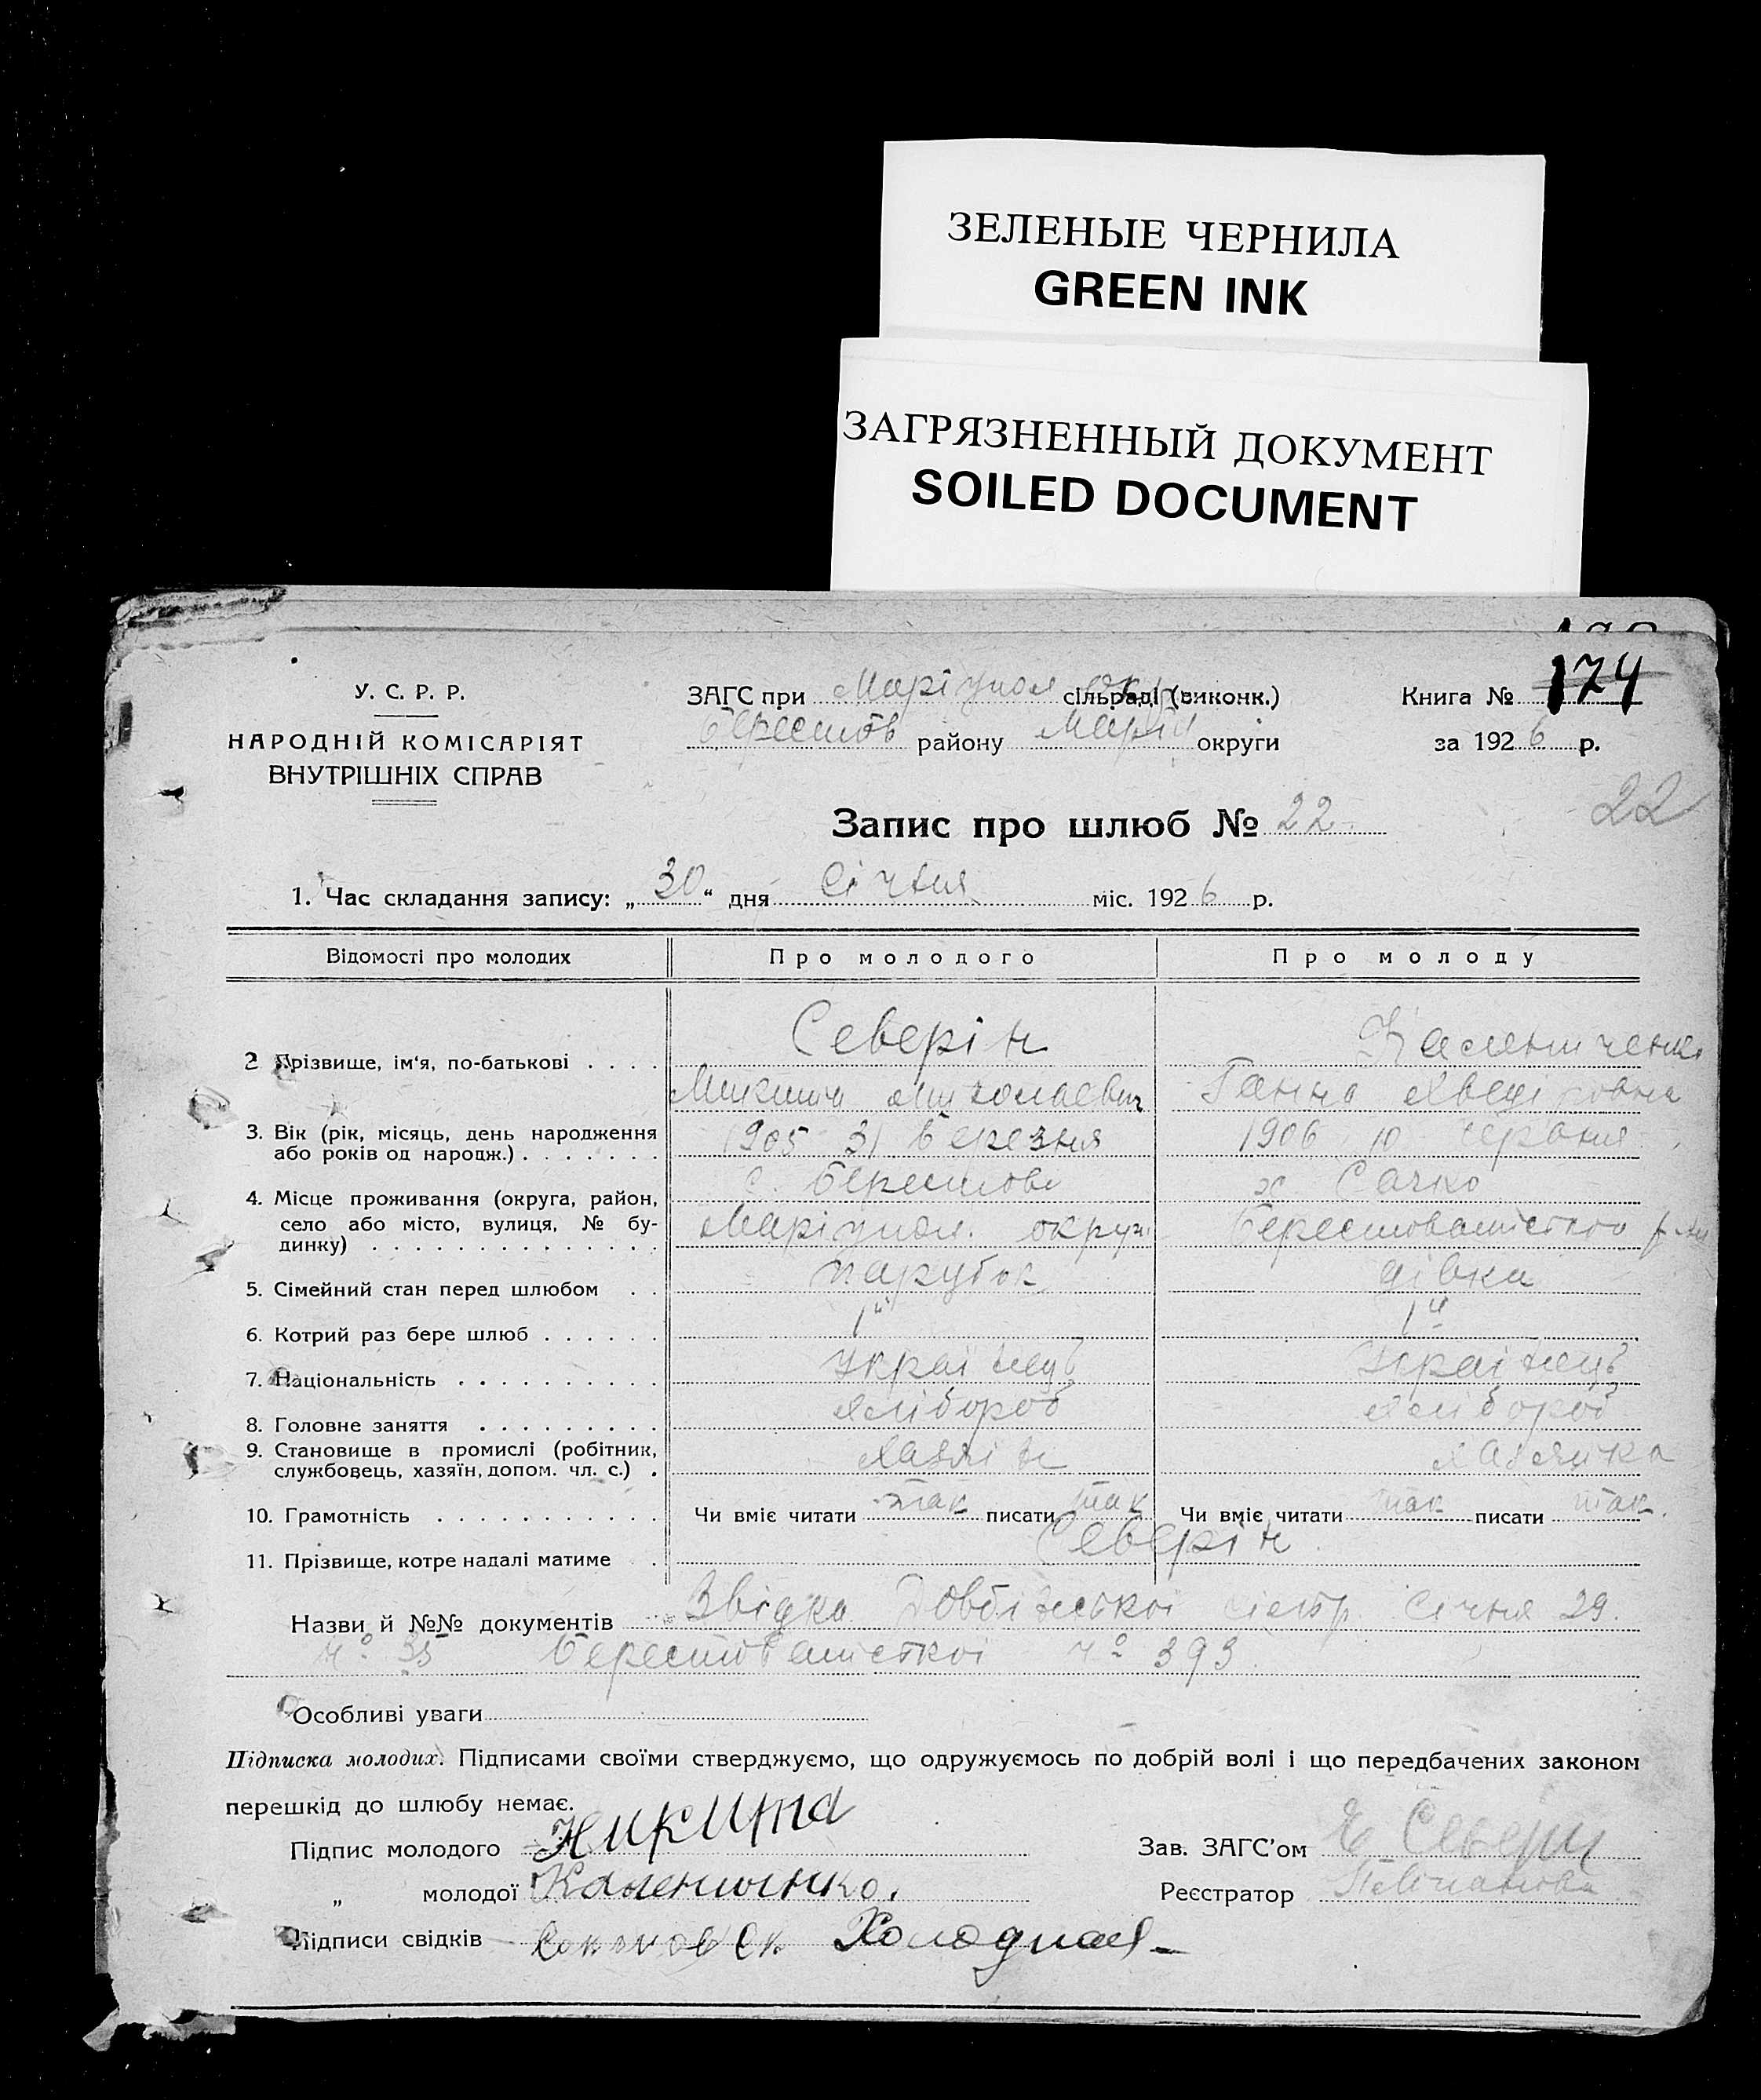 ЗЕЛЕНЫЕ ЧЕРНИЛА
GREEN INK
ЗАГРЯЗНЕННЫЙ ДОКУМЕНТ
SOILED DOCUMENT
У. С. Р. Р.
НАРОДНІЙ КОМІСАРІЯТ
ВНУТРІШНІХ СПРАВ
ЗАГС при Маріупол окр. сільраді (виконк.)
Берестов району Маріуп округи
Книга № 174
за 1926 р.
Запис про шлюб № 22
22
1. Час складання запису: „30“ дня Січня міс. 1926 р.
Відомості про молодих Про молодого Про молоду
2 Прізвище, ім'я, по-батькові . . . . Северін
Микита Миколаевич Ганна
3. Вік (рік, місяць, день народження
або років од народж.) . . . . . . . 1905 31 Березня 1906 10 Червня
4. Місце проживання (округа, район,
село або місто, вулиця, № бу-
динку) . . . . . . . . . . . . . . с. Берестове х Сачко
Маріупол. округи
5. Сімейний стан перед шлюбом . . парубок дівка
6. Котрий раз бере шлюб . . . . . . 1й 1й
7. Національність . . . . . . . . . . Українець Українець
8. Головне заняття . . . . . . . . . хлібороб хлібороб
9. Становище в промислі (робітник,
службовець, хазяїн, допом. чл. с.) . хазяїн хазяйка
10. Грамотність . . . . . . . . . . . Чи вміє читати так писати так Чи вміє читати так писати так.
11. Прізвище, котре надалі матиме . Северін
Назви й №№ документів Звідка Січня 29.
№ 35 № 393
Особливі уваги
Підписка молодих. Підписами своїми стверджуємо, що одружуємось по добрій волі і що передбачених законом
перешкід до шлюбу немає.
Підпис молодого Никита
„ молодої
Підписи свідків Холодная
Зав. ЗАГС'ом
Реєстратор